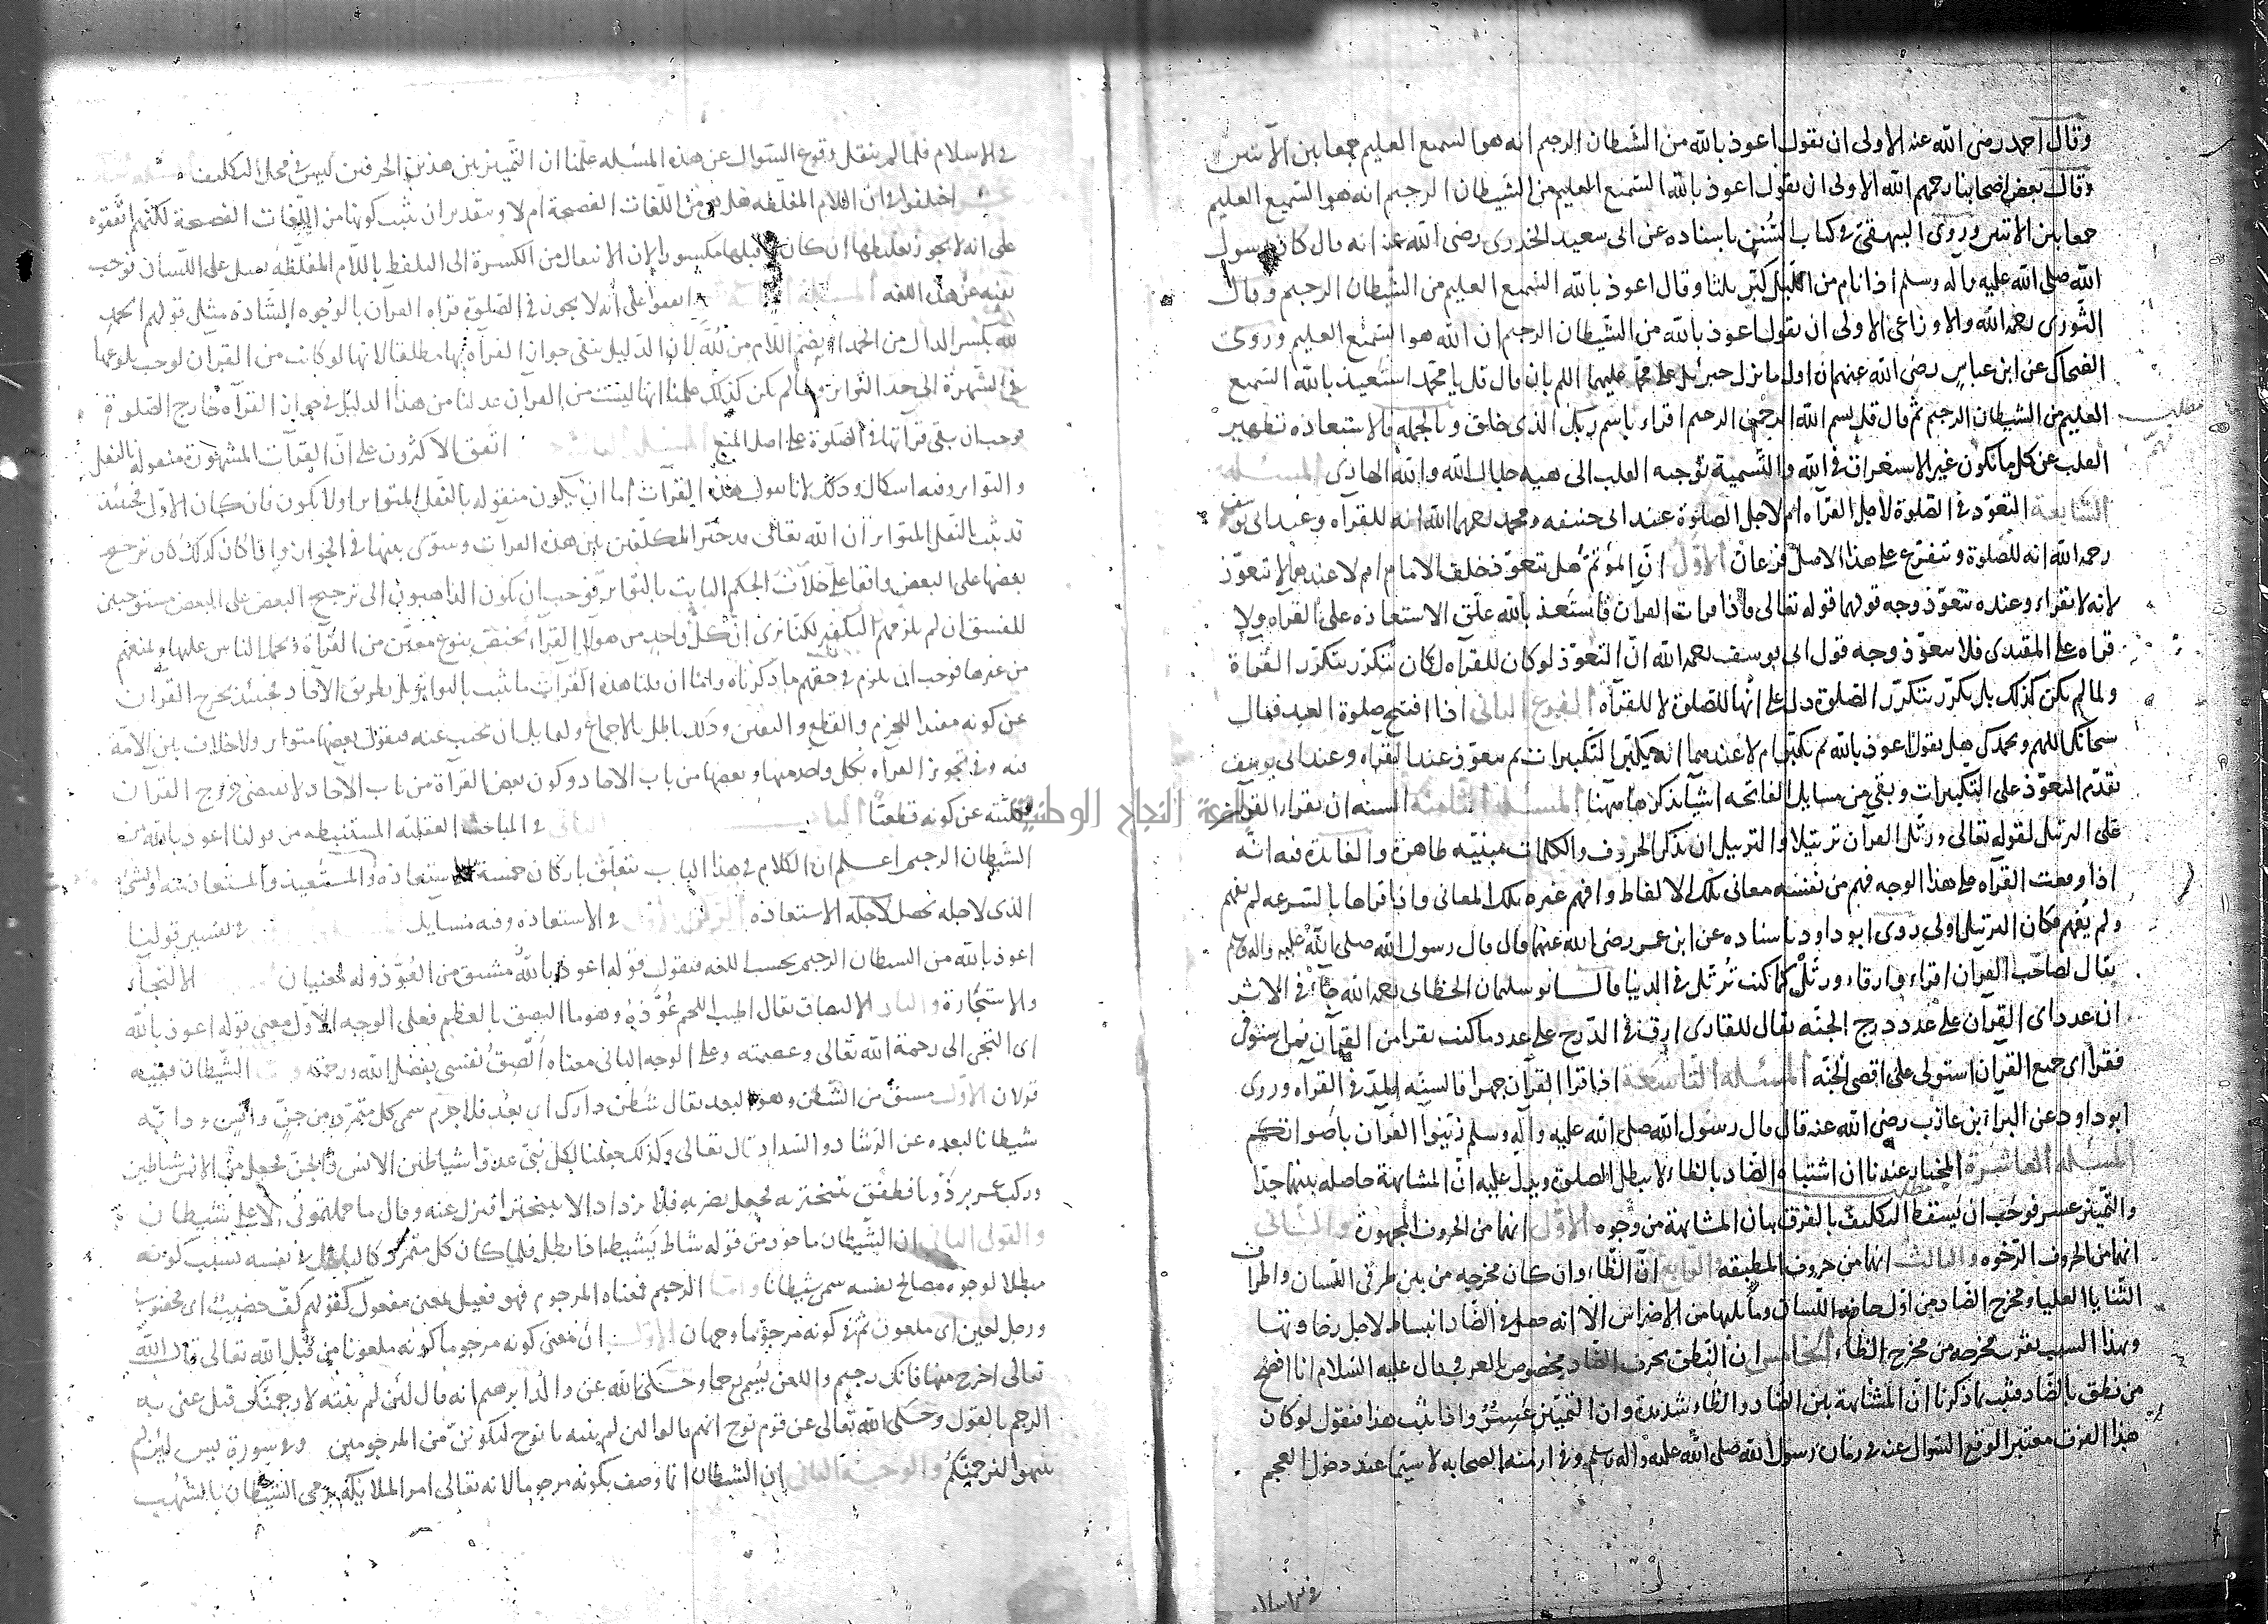 وقال احمد رضى الله عنه الاولى ان يقول اعوذ بالله من الشيطان الرجيم انه هو السميع العليم جمعا بين الآيتين
وقال بعض اصحابنا رحمهم الله الاولى ان يقول اعوذ بالله السميع العليم من الشيطان الرجيم انه هو السميع العليم
جمعا بين الايتين وروى البيهقى فى كتاب السنن باسناده عن ابى سعيد الخدرى رضى الله عنه انه قال كان رسول
الله صلى الله عليه وآله وسلم اذا قام من الليل كبر ثلثا وقال اعوذ بالله السميع العليم من الشيطان الرجيم وقال
الثورى رحمه الله والاوزاعى الاولى ان يقول اعوذ بالله من الشيطان الرجيم ان الله هو السميع العليم وروى
الضحاك عن ابن عباس رضى الله عنهم ان اول ما نزل جبرئيل على محمد عليهما السلم بان قال قل يا محمد استعيذ بالله السميع
العليم من الشيطان الرجيم ثم قال قل بسم الله الرحمن الرحيم اقراء باسم ربك الذى خلق وبالجملة فالاستعاذه تطهير
مطلب
القلب عن كل ما يكون غير الاستغراق فى الله والتسمية توجه القلب الى هيبه جلال الله والله الهادى المسئله
السابعة التعوذ فى الصلوة لاجل القرآه ام لاجل الصلوة عند ابى حنيفه ومحمد رحمهما الله انه للقرآه وعند ابى يوسف
رحمه الله انه للصلوة ويتفرع على هذا الاصل فرعان الاول ان المؤتم هل يتعوذ خلف الامام ام لا عندهما لا يتعوذ
لانه لا يقراء وعنده يتعوذ وجه قولهما قوله تعالى فاذا قرات القرآن فاستعذ بالله علق الاستعاذه على القرآه ولا
قراه على المقتدى فلا يتعوذ وجه قول ابى يوسف رحمه الله ان التعوذ لو كان للقرآه لكان يتكرر بتكرر القراة
ولما لم يكن كذلك بل يكرر بتكرر الصلوة دل على انها للصلوة لا للقرآه الفرع الثانى اذا افتتح صلوة العيد فقال
سبحانك اللهم وبحمدك هل يقول اعوذ بالله ثم يكبر ام لا عندهما انه يكبر التكبيرات ثم يتعوذ عند القراه وعند ابى يوسف
يقدم التعوذ على التكبيرات وبقى من مسايل الفاتحه اشيآ نذكرها ههنا المسئله الثامنة السنه ان يقراء القرآن
على الترتيل لقوله تعالى ورتل القرآن ترتيلا والترتيل ان يذكر الحروف والكلمات مبينه ظاهرة والفائدة فيه انه
اذا وقعت القرآه على هذا الوجه فهم من نفسه معانى تلك الالفاظ وافهم غيره تلك المعانى واذا قراها بالسرعه لم يفهم
ولم يفهم فكان الترتيل اولى روى ابو داود باسناده عن ابن عمر رضى الله عنهما قال قال رسول الله صلى الله عليه وآله وسلم
يقال لصاحب القرآن اقراء وارقاء ورتل كما كنت ترتل فى الدنيا قال ابو سليمان الخطابى رحمه الله جآء فى الاثر
ان عدد اى القرآن على عدد درج الجنه يقال للقارى ارق فى الدرج على عدد ما كنت تقرا من القرآن فمن استوفى
فقرا اى جميع القرآن استولى على اقصى الجنه المسئله التاسعة اذا قرا القرآن جهرا فالسنه المد فى القرآه وروى
ابو داود عن البراء بن عازب رضى الله عنه قال قال رسول الله صلى الله عليه وآله وسلم زينوا القرآن باصواتكم
المسئله العاشرة المختار عندنا ان اشتباه الضاد بالظاء لا يبطل الصلوة ويدل عليه ان المشابهة حاصله بينهما جدا
والتمييز عسر فوجب ان يسقط التكليف بالفرق بيان المشابهة من وجوه الاول انهما من الحروف المجهورة والثانى
انهما من الحروف الرخوه والثالث انهما من حروف المطبقه والرابع ان الظاء وان كان مخرجه من بين طرفى اللسان واطراف
الثنايا العليا ومخرج الضاد من اول حافه اللسان وما يليها من الاضراس الا انه حصل فى الضاد انبساط لاجل رخاوتها
وبهذا السبب يقرب مخرجه من مخرج الظاء الخامس ان النطق بحرف الضاد مخصوص بالعرب قال عليه السلام انا افصح
من نطق بالضاد فثبت بما ذكرنا ان المشابهة بين الضاد والظاء شديدة وان التمييز عسر واذا ثبت هذا فنقول لو كان
هذا الفرق معتبرا لوقع السوال عنه فى زمان رسول الله صلى الله عليه وآله وسلم وفى ازمنه الصحابه لا سيما عند دخول العجم
فى الاسلام
فى الاسلام فلما لم ينقل وقوع السوال عن هذه المسئله علمنا ان التمييز بين هذين الحرفين ليس فى محل التكليف
اختلفوا فى ان اللام المغلظه هل هى من اللغات الفصيحة ام لا وبتقدير ان يثبت كونها من اللغات الفصيحة لكنهم اتفقوه
على انه لا يجوز تغليظها ان كان ما قبلها مكسورا لان الانتقال من الكسرة الى التلفظ باللام المغلظه ثقيل على اللسان فوجب
نفيه عن هذه اللغه المسئله اتفقوا على انه لا يجوز فى الصلوة قراه القرآن بالوجوه الشاذه مثل قولهم الحمد
لله بكسر الدال من الحمد او بضم اللام من لله لان الدليل ينفى جواز القرآه بها مطلقا لانها لو كانت من القرآن لوجب بلوغها
فى الشهرة الى حد التواتر ولما لم يكن كذلك علمنا انها ليست من القرآن عدلنا من هذا الدليل فى جواز القرآه خارج الصلوة
فوجب ان يبقى قرآتها فى الصلوة على اصل المنع اتفق الاكثرون على ان القرآت المشهورة منقوله بالنقل
والتواتر وفيه اشكال وذلك لانا نقول هذه القرآت اما ان يكون منقوله بالنقل المتواتر او لا يكون فان كان الاول فحينئذ
قد ثبت بالنقل المتواتر ان الله تعالى قد خير المكلفين بين هذه القرآت وسوى بينها فى الجواز واذا كان كذلك كان ترجيح
بعضها على البعض واقعا على خلاف الحكم الثابت بالتواتر فوجب ان يكون الذاهبون الى ترجيح البعض على البعض مستوجبين
للفسق ان لم يلزمهم التكفير لكنا نرى ان كل واحد من هولا القرآء يختص بنوع معين من القرآه ويحمل الناس عليها ويمنعهم
من غيرها فوجب ان يلزم فى حقهم ما ذكرناه واما ان قلنا هذه القرآت ما ثبت بالتواتر بل بطريق الآحاد فحينئذ يخرج القرآن
عن كونه مفيدا للجزم والقطع واليقين وذلك باطل بالاجماع ولقايل ان يجيب عنه فيقول بعضها متواتر ولا خلاف بين الامة
فيه وفى تجويز القرآه بكل واحد منها وبعضها من باب الآحاد وكون بعض القرآة من باب الآحاد لا يقتضى خروج القرآن
بكليته عن كونه قطعيا فى المباحث العقليه المستنبطه من قولنا اعوذ بالله من
الشيطان الرجيم اعلم ان الكلام فى هذا الباب يتعلق باركان خمسة الاستعاذه والمستعيذ والمستعاذ منه والشئ
الذى لاجله تحصل لاجله الاستعاذه الركن الاول فى الاستعاذه وفيه مسايل فى تفسير قولنا
اعوذ بالله من الشيطان الرجيم بحسب اللغه فنقول قوله اعوذ بالله مشتق من العوذ وله معنيان الالتجآء
والاستجارة والثانى الالتصاق يقال اطيب اللحم عوذه وهو ما التصق بالعظم فعلى الوجه الاول معنى قوله اعوذ بالله
اى التجى الى رحمة الله تعالى وعصمته وعلى الوجه الثانى معناه الصق نفسى بفضل الله ورحمته الشيطان ففيه
قولان الاول مشتق من الشطن وهو البعد يقال شطن دارك اى بعد فلا جرم سمى كل متمرد من جن وانس ودابه
شيطانا لبعده عن الرشاد والسداد قال تعالى وكذلك جعلنا لكل نبى عدوا شياطين الانس والجن فجعل من الانس شياطين
وركب عمر برذونا فطفق يتبختر به فجعل يضربه فلا يزداد الا تبخترا فنزل عنه وقال ما حملتمونى الا على شيطان
والقول الثانى ان الشيطان ماخوذ من قوله شاط يشيط اذا بطل فلما كان كل متمرد كالباطل فى نفسه بسبب كونه
مبطلا لوجوه مصالح نفسه سمى شيطانا واما الرجيم فمعناه المرجوم فهو فعيل بمعنى مفعول كقولهم كف خضيب اى مخضوب
ورجل لعين اى ملعون ثم فى كونه مرجوما وجهان الاول ان معنى كونه مرجوما كونه ملعونا من قبل الله تعالى قال الله
تعالى اخرج منها فانك رجيم واللعن يسمى رجما وحكى الله عن والد ابرهيم انه قال لئن لم تنته لارجمنك قيل عنى به
الرجم بالقول وحكى الله تعالى عن قوم نوح انهم قالوا لئن لم تنته يا نوح لتكونن من المرجومين وفى سورة يس لئن لم
تنتهوا لنرجمنكم والوجه الثانى ان الشيطان انما وصف بكونه مرجوما لانه تعالى امر الملايكه برمى الشيطان بالشهب
جامعة النجاح الوطنية